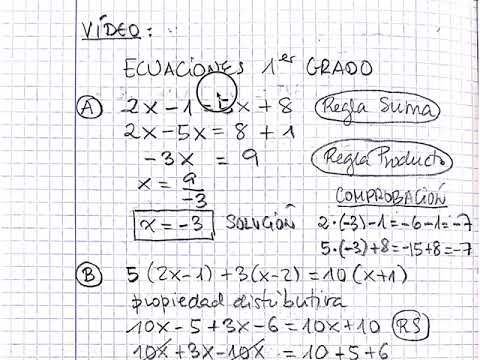 VÍDEO:
ECUACIONES 1er GRADO
A 2x - 1 = 5x + 8 Regla Suma
2x - 5x = 8 + 1
-3x = 9 Regla Producto
x = 9/-3 COMPROBACIÓN
x = -3 SOLUCIÓN 2·(-3)-1=-6-1=-7
5·(-3)+8=-15+8=-7
B 5(2x-1)+3(x-2)=10(x+1)
propiedad distributiva
10x - 5 + 3x - 6 = 10x + 10 RS
10x + 3x - 10x = 10 + 5 + 6